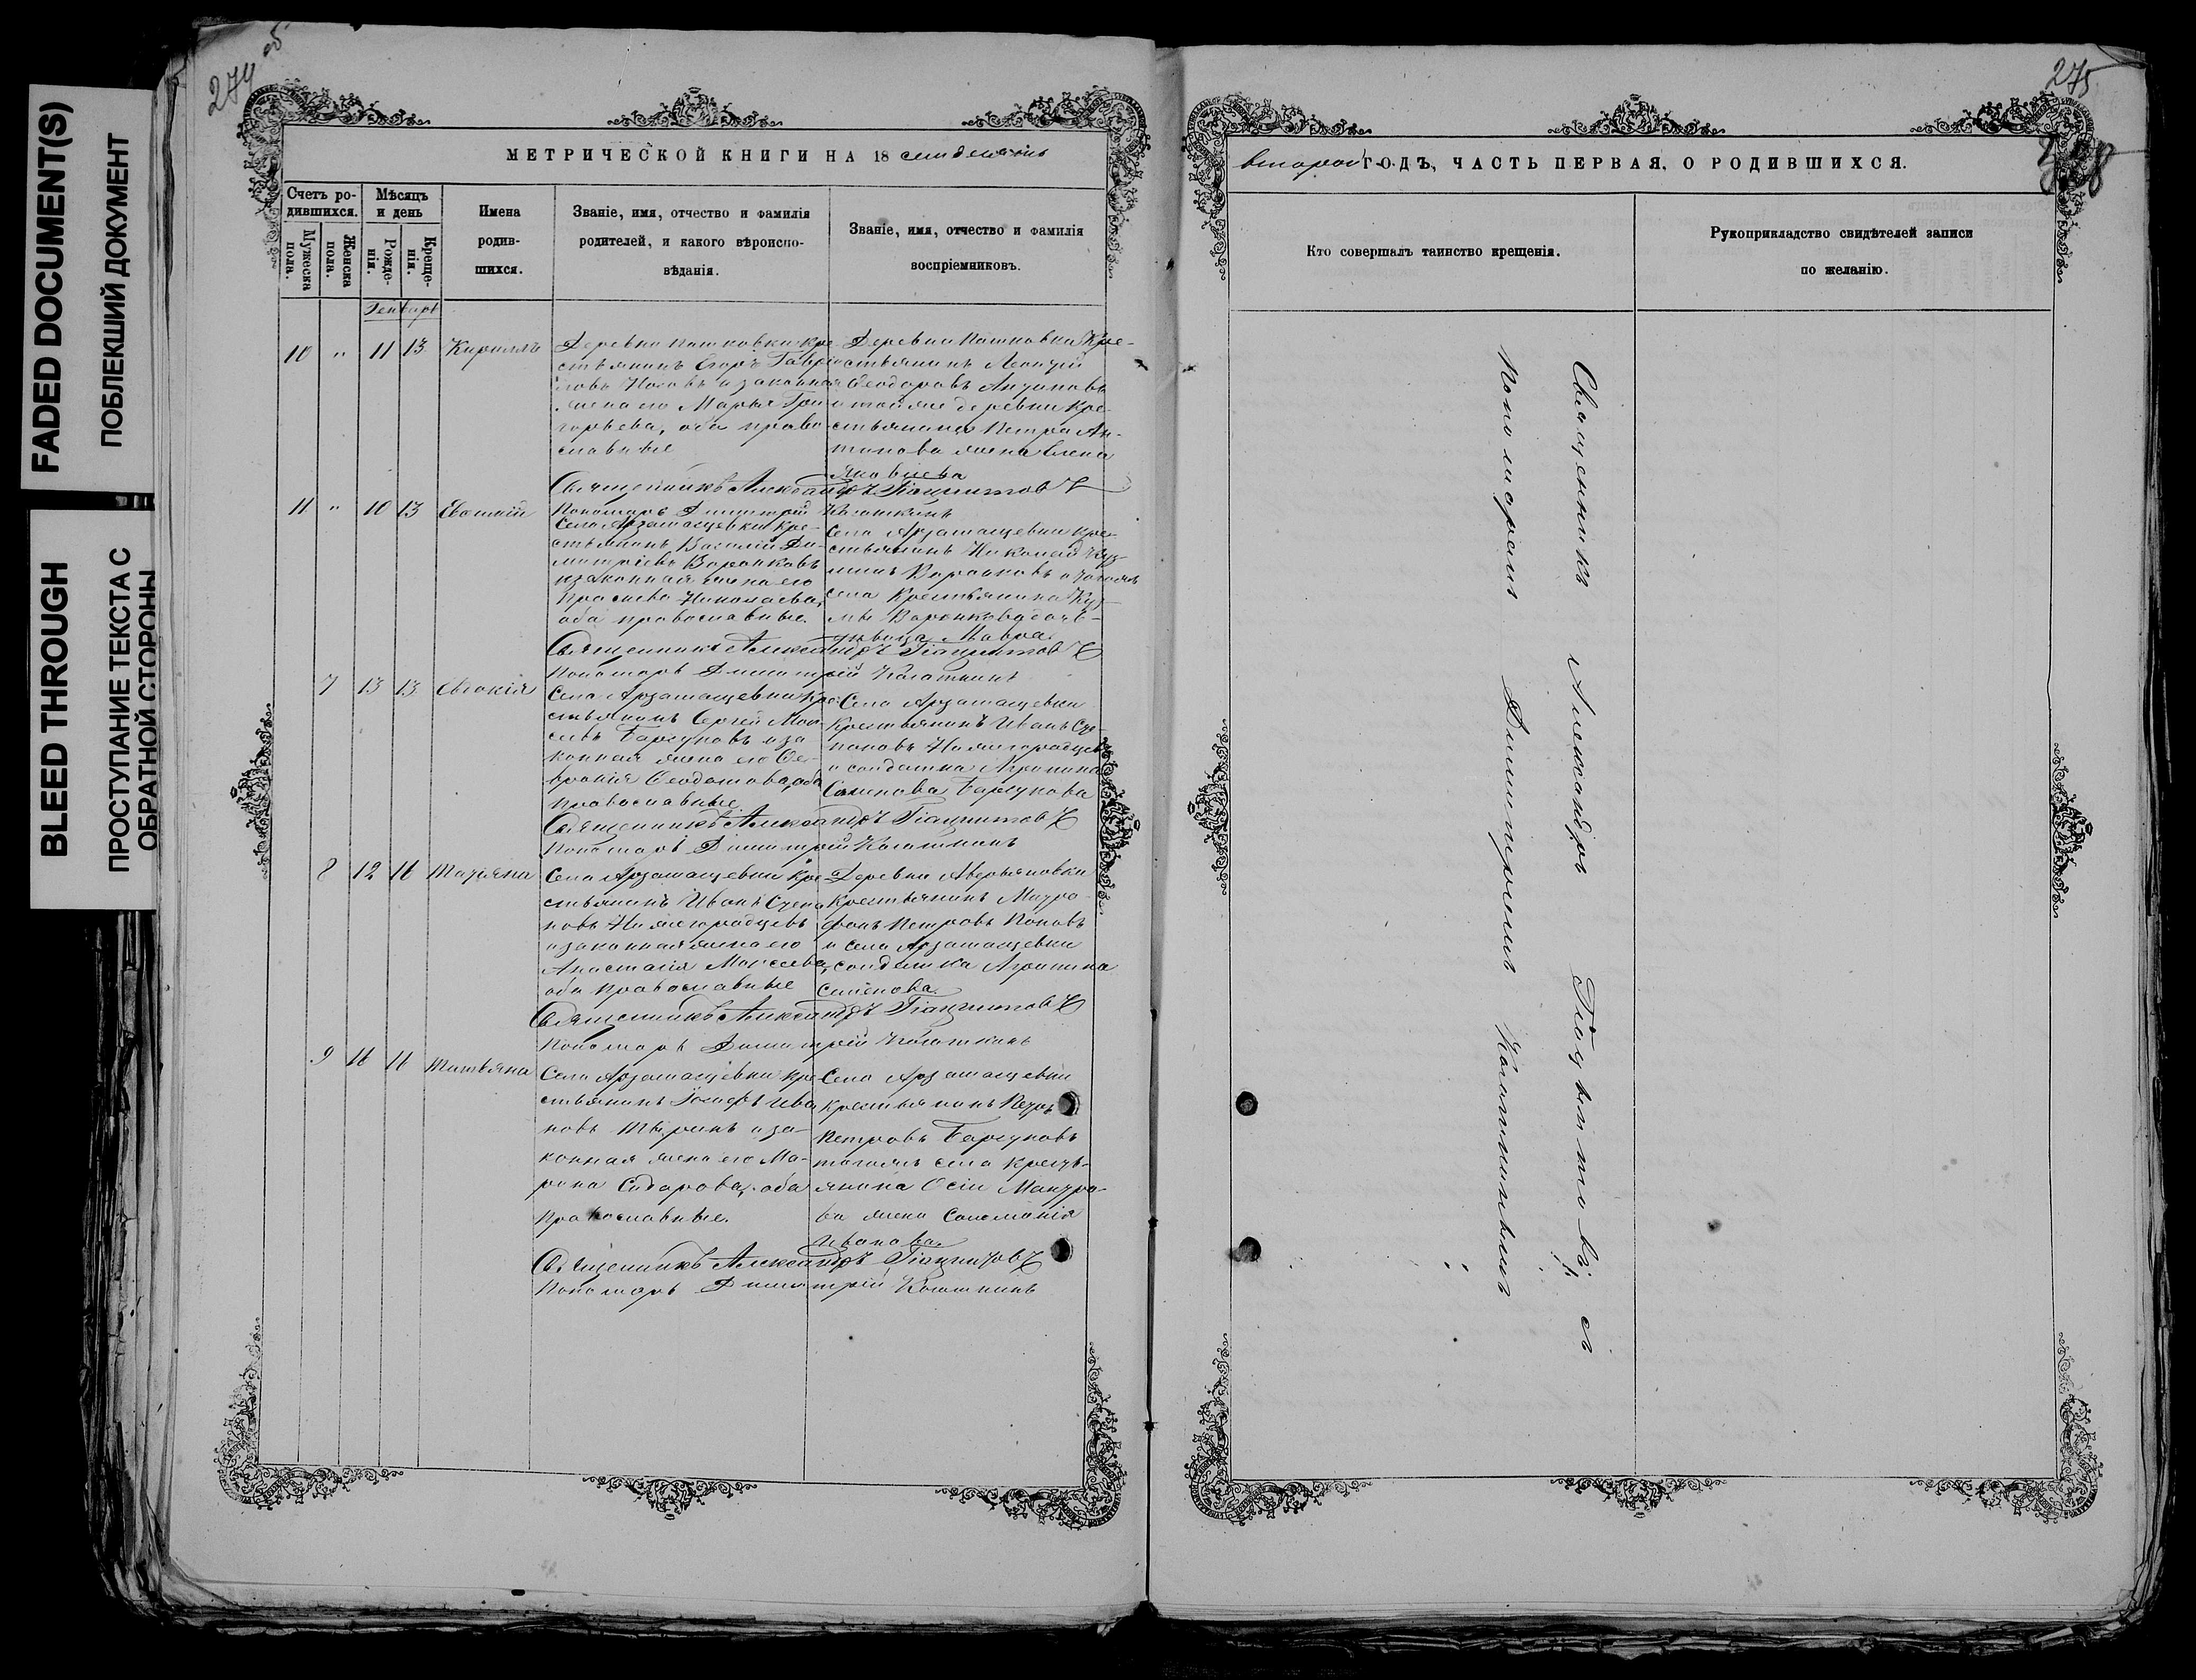 FADED DOCUMENT(S)
ПОБЛЕКШИЙ ДОКУМЕНТ
BLEED THROUGH
ПРОСТУПАНИЕ ТЕКСТА С
ОБРАТНОЙ СТОРОНЫ
274 об
МЕТРИЧЕСКОЙ КНИГИ НА 18 семдесятъ
Счетъ ро-
дившихся.
Мужеска
пола.
Женска
пола.
Мѣсяцъ
и день
Рожде-
нія.
Креще-
нія.
Имена
родив-
шихся.
Званіе, имя, отчество и фамилія
родителей, и какого вѣроиспо-
вѣданія.
Званіе, имя, отчество и фамилія
воспріемниковъ.
Генварь
10 " 11 13 Кириллъ
Деревни Пашковки кре-
стьянинъ Егоръ Гаври
ловъ Носовъ и законная
жена его Марья Гри
горьева, оба право
славные
Деревни Пашковки Кре-
стьянинъ Леонтій
Ѳеодоровъ Антоновъ
и тойже деревни кре-
стьянина Петра Ан-
тонова жена Елена
Яковлева
Священникъ Александръ Гіацинтовъ
Пономарь Димитрій Колоткинъ
11 " 10 13 Евгеній
Села Арзамасцевки кре-
стьянинъ Василій Ди-
митріевъ Воронковъ
и законная жена его
Николаева,
оба православные.
Села Арзамасцевки кре-
стьянинъ Николай Куз-
минъ Воронковъ и тогожъ
села Крестьянина Куз-
мы Воронкова дочь-
дѣвица Мавра.
Священникъ Александръ Гіацинтовъ
Пономарь Димитрій Колоткинъ
7 13 13 Евдокія
Села Арзамасцевки кре
стьянинъ Сергей Мои-
сеевъ Барсуковъ и за
конная жена его Ѳе-
вронія Ѳеодотова, оба
православные
Села Арзамасцевки
Крестьянинъ Иванъ Сте-
пановъ Нижегородцевъ
и солдатка Агрипина
Семенова Барсукова
Священникъ Александръ Гіацинтовъ
Пономарь Димитрій Колоткинъ
8 12 16 Татіяна
Села Арзамасцевки кре
стьянинъ Иванъ Степа
новъ Нижегородцевъ
и законная жена его
Анастасія Моисеева,
оба православные
Деревни Аверьяновки
Крестьянинъ Митро-
фанъ Петровъ Поповъ
и села Арзамасцевки
солдатка Агрипина
Семенова.
Священникъ Александръ Гіацинтовъ
Пономарь Димитрій Колоткинъ
9 16 16 Татьяна
Села Арзамасцевки кре
стьянинъ Іосифъ Ива
новъ и за-
конная жена его Ма-
рина Сидарова, оба
православные.
Села Арзамасцевки
крестьянинъ Петръ
Петровъ Барсуковъ
тогожъ села кресть-
янина Осіи
ва жена Соломанія
Иванова.
Священникъ Александръ Гіацинтовъ
Пономарь Димитрій Колоткинъ
275
второй ГОДЪ, ЧАСТЬ ПЕРВАЯ, О РОДИВШИХСЯ.
Кто совершалъ таинство крещенія.
Рукоприкладство свидѣтелей записи
по желанію.
Священникъ Александръ Гіацынтовъ съ
Пономаремъ Димитріемъ Колоткинымъ